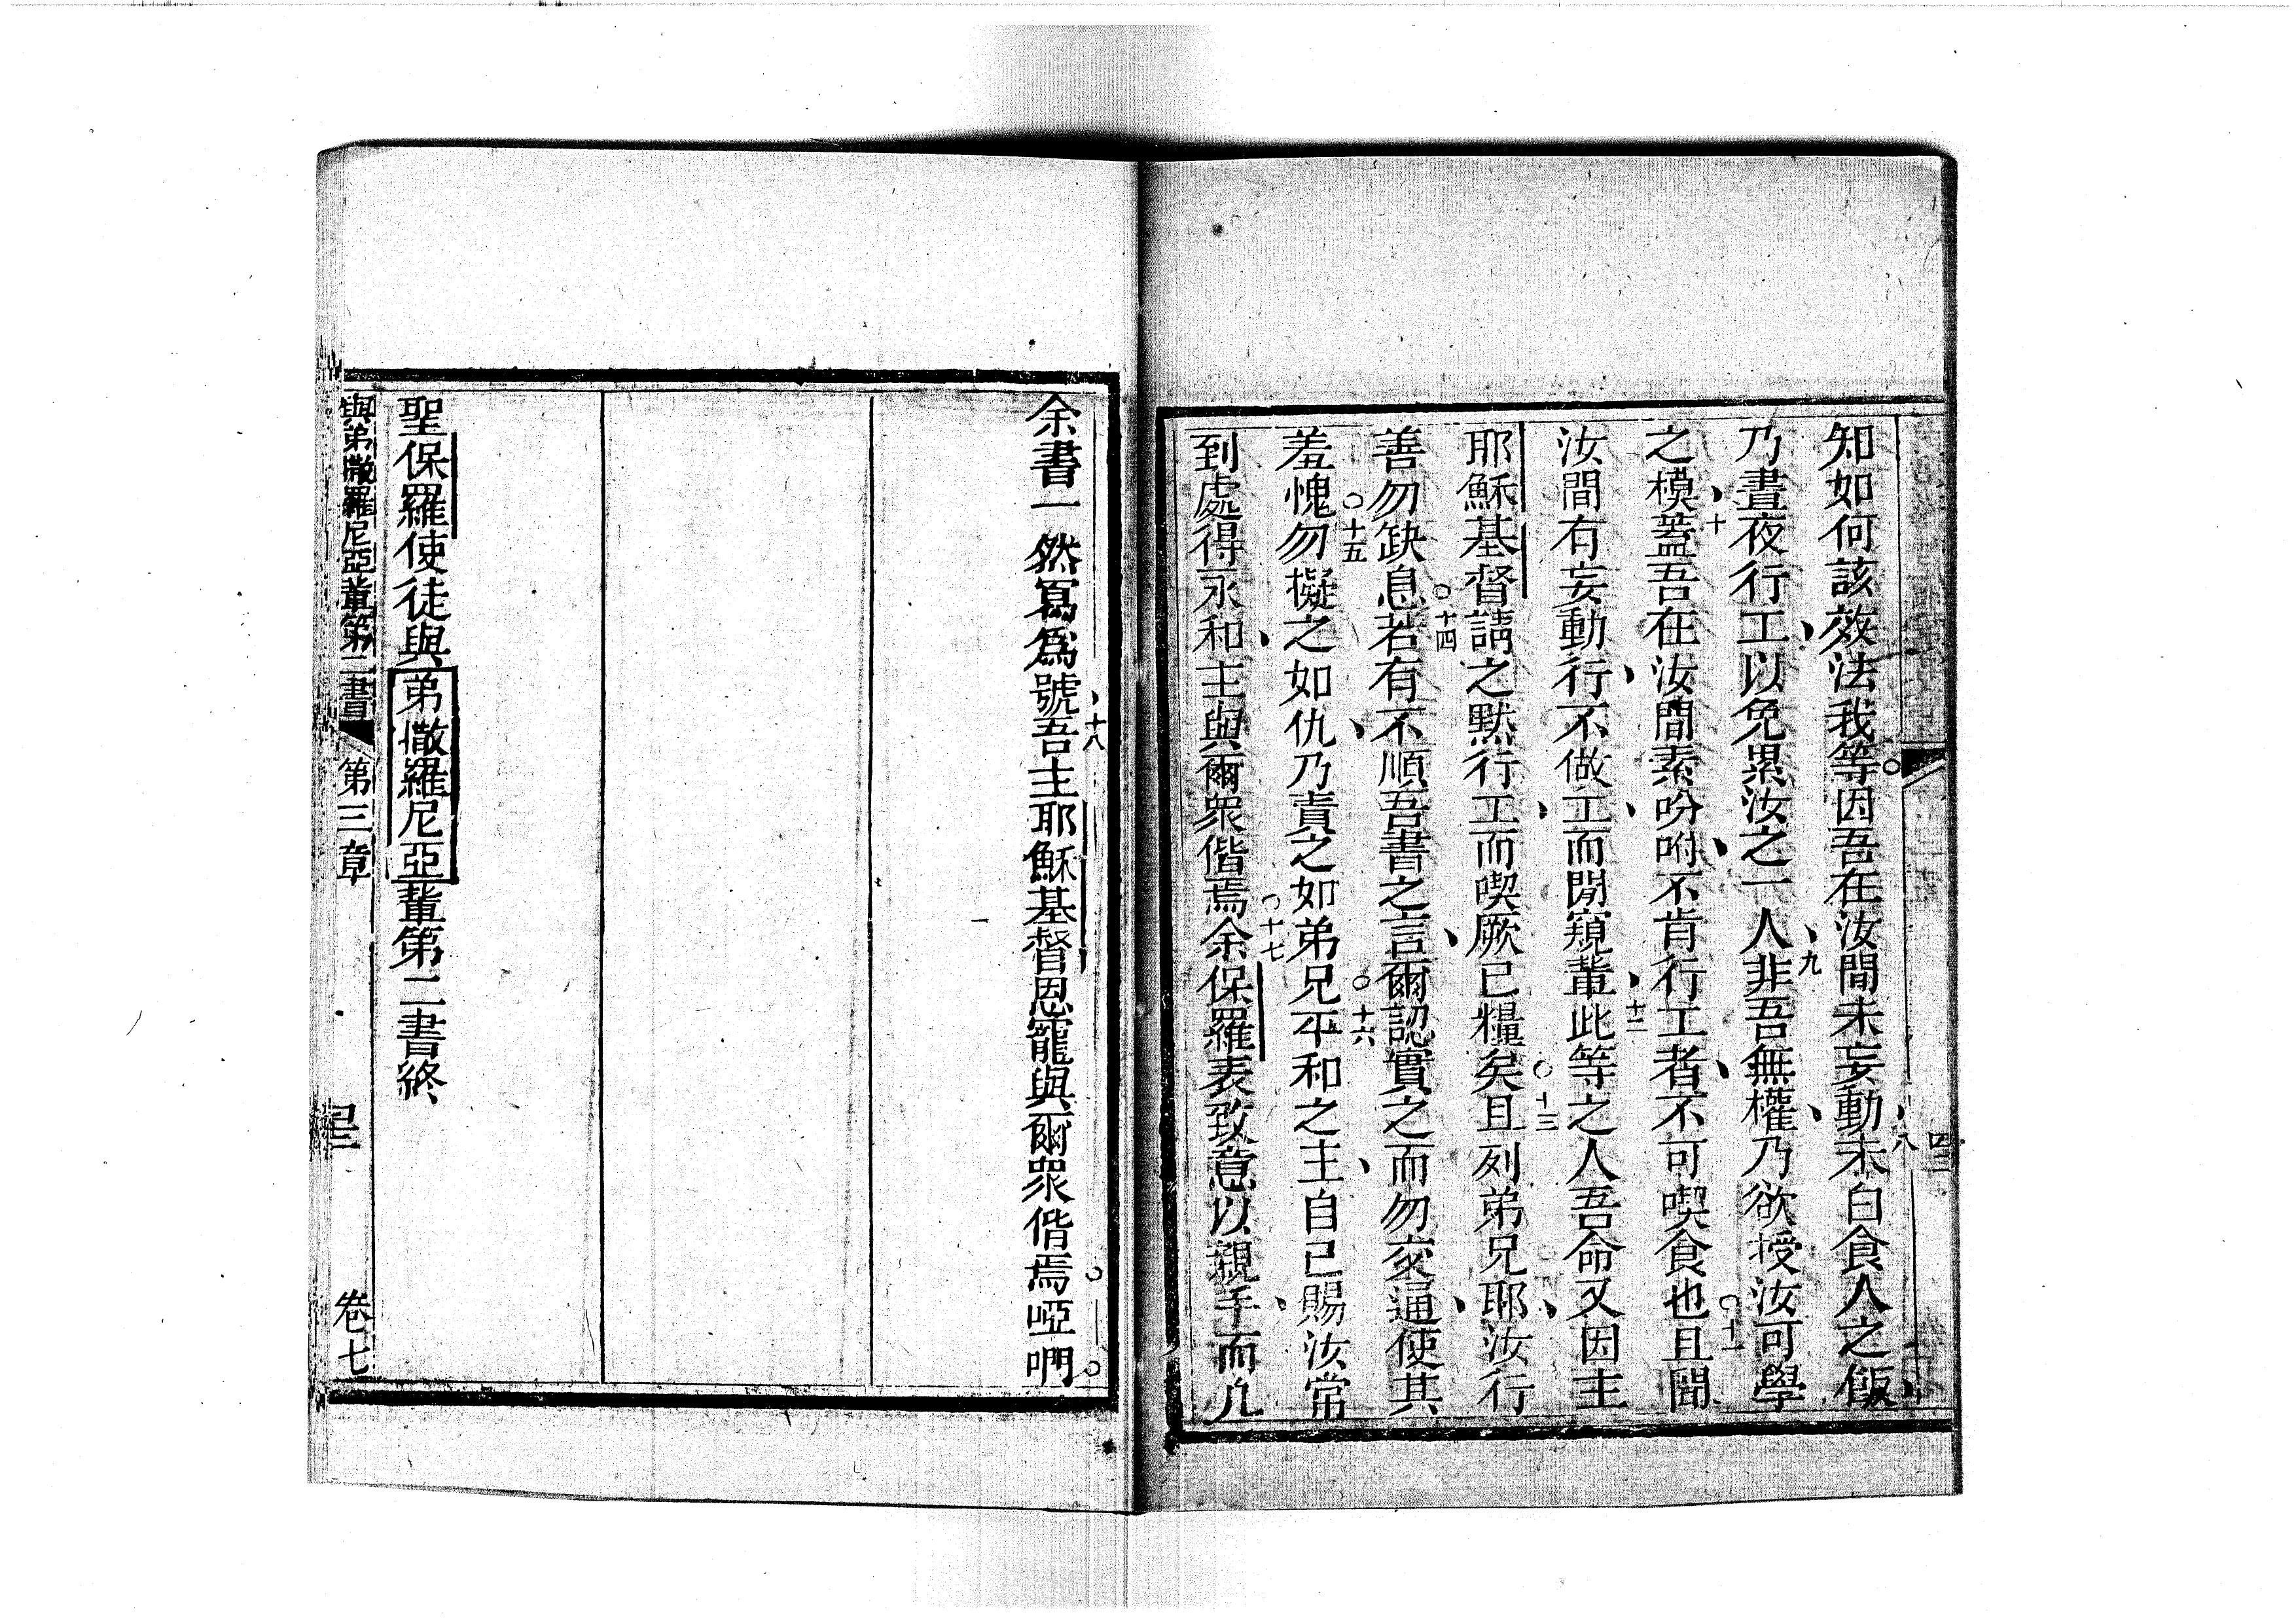 知如何該效法我等因吾在汝間未妄動八未白食人之飯
乃晝夜行工以免累汝之一人九非吾無權乃欲授汝可學
之模十蓋吾在汝間素吩咐不肯行工者不可喫食也十一且聞
汝間有妄動行不做工而閒窺輩十二此等之人吾命又因主
耶穌基督請之默行工而喫厥己糧矣十三且列弟兄耶汝行
善勿缺息十四若有不順吾書之言爾認實之而勿交通使其
羞愧十五勿擬之如仇乃責之如弟兄十六平和之主自己賜汝常
到處得永和主與爾眾偕焉十七余保羅表致意以親手而凡
余書一然寫為號十八吾主耶穌基督恩寵與爾眾偕焉啞們
聖保羅使徒與弟撒羅尼亞輩第二書終
與弟撒羅尼亞輩第二書 第三章 卷七